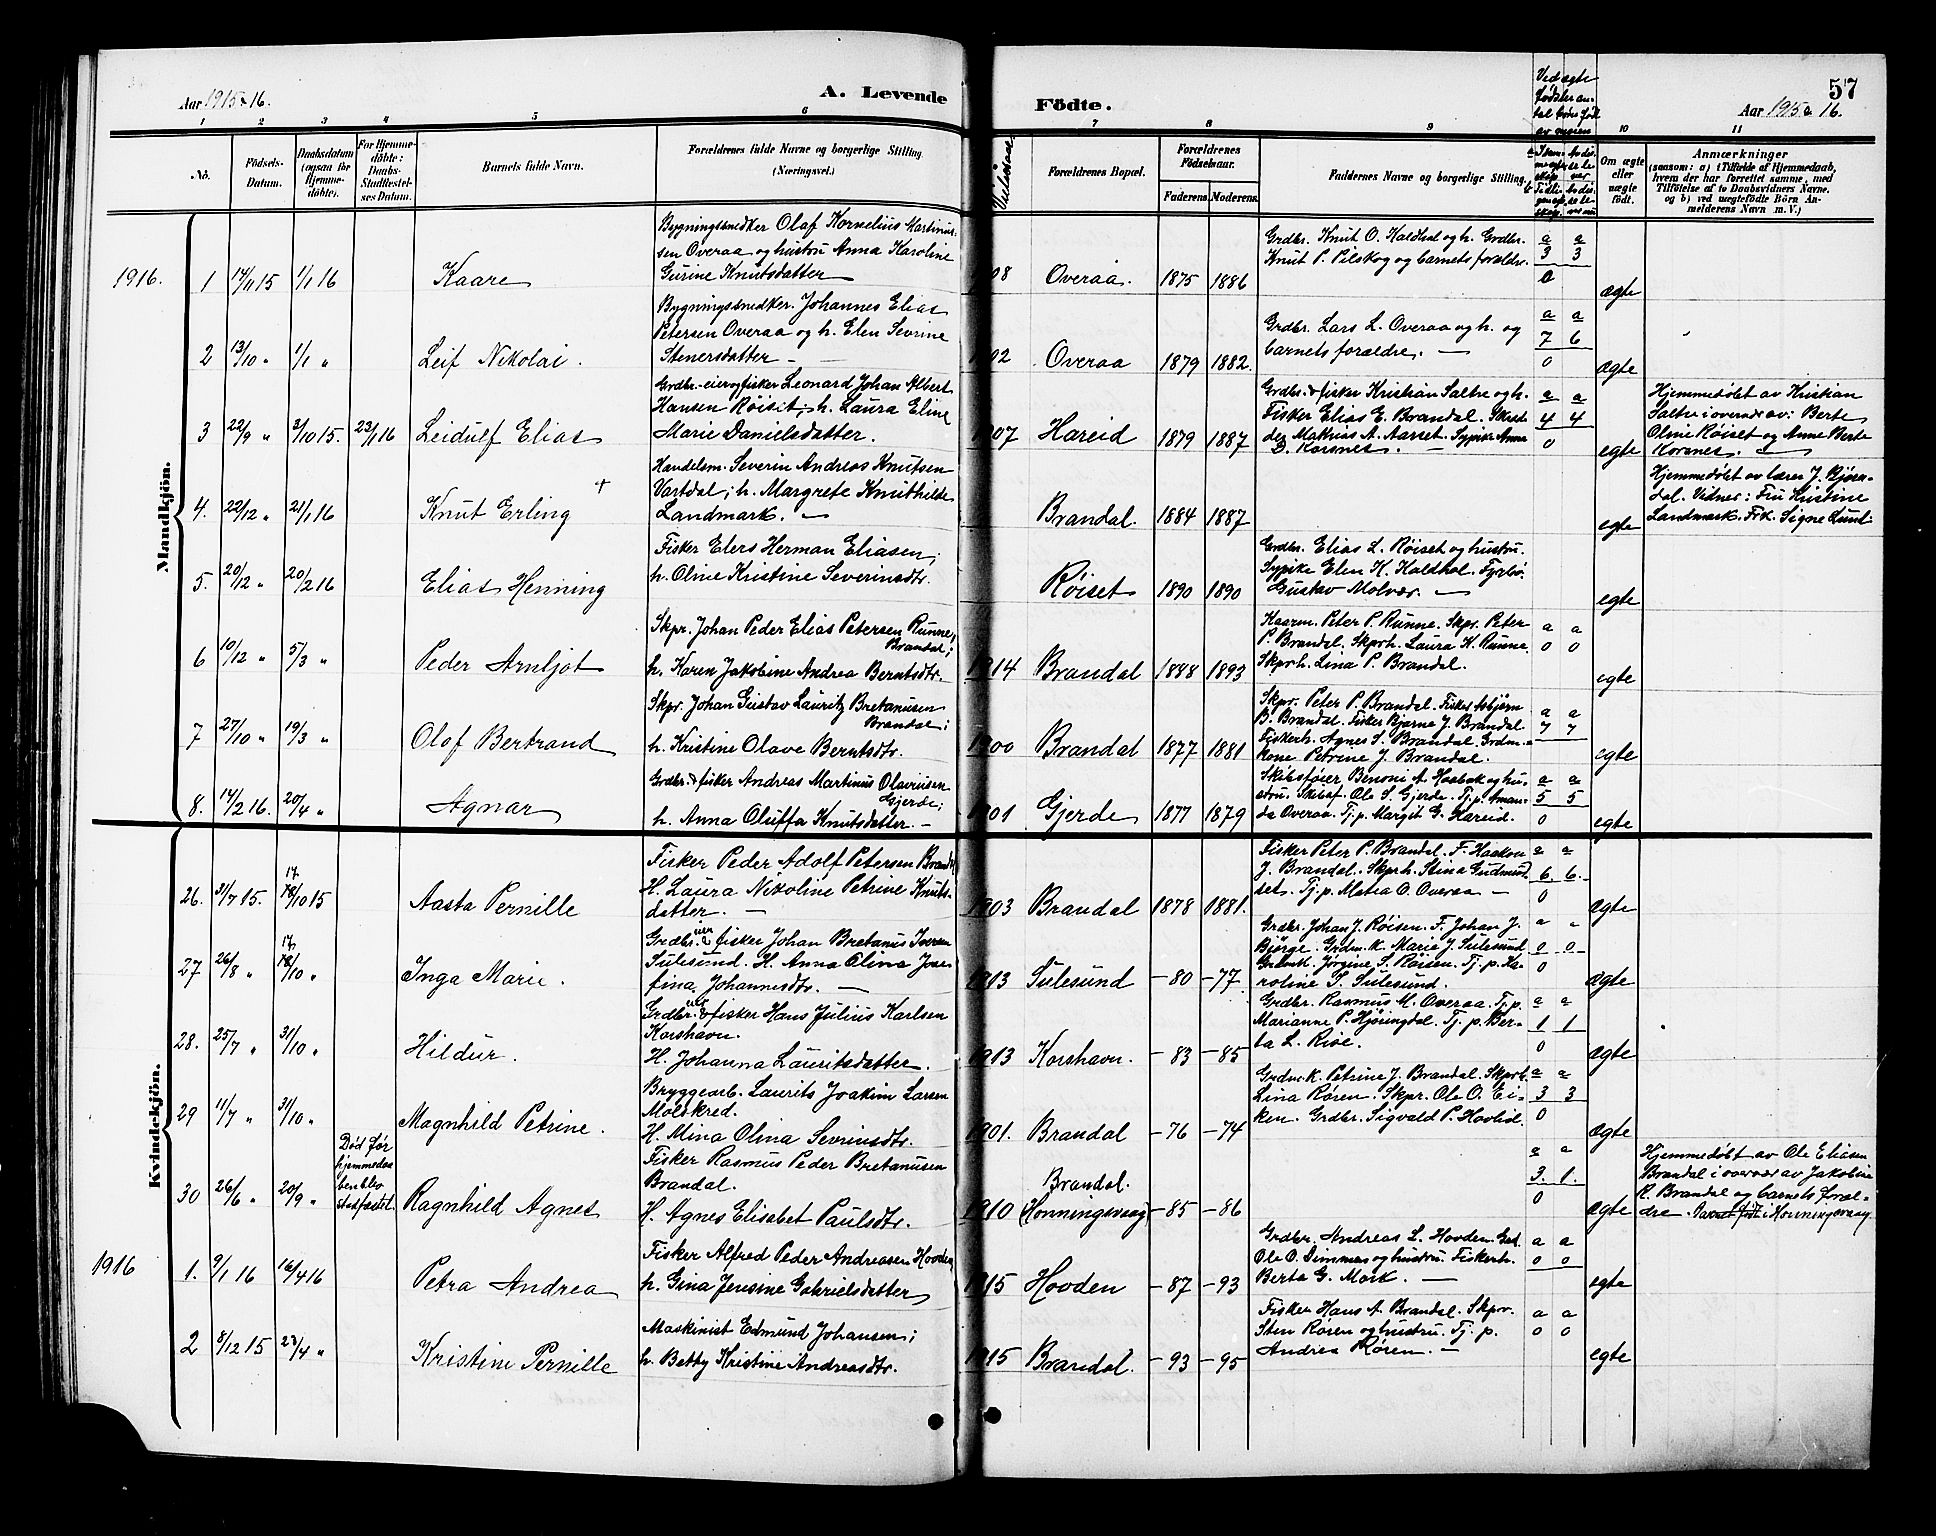 Aar 1915 & 16.
A. Levende
Födte.
57
Aar 1915 & 16.
1 2 3 4 5 6 7 8 9 10 11
No.
Födsels-Datum.
Daabsdatum (ogsaa for Hjemme-döbte).
For Hjemme-döbte: Daabs-Stadfæstel-ses Datum.
Barnets fulde Navn.
Forældrenes fulde Navne og borgerlige Stilling (Næringsvei.)
Forældrenes Bopæl.
Forældrenes Födselsaar.
Faderens. Moderens.
Faddernes Navne og borgerlige Stilling.
Om ægte eller uægte födt.
Anmærkninger
(saasom: a) i Tilfælde af Hjemmedaab,
hvem der har forrettet samme, med
Tilföielse af to Daabsvidners Navne,
og b) ved uægtefödte Börn An-
melderens Navn m. V.)
Mandkjön.
Bygningssnedker Olaf Kornelius Martinus-
sen Overaa og hustru Anna Karoline
Gurine Knutsdatter
1916. 1 14/11 15 1/1 16 Kaare 08 Overaa. 1875 1886
Grdbr. Knut O. Haldhal og h. Grdbr.
Knut P. Pilskog og barnets forældre.
a a 3 3 0 ægte
Bygningssnedker. Johannes Elias
Petersen Overaa og h. Elen Sevrine
Stenersdatter
2 13/10 " 1/1 " Leif Nikolai. 02 Overaa 1879 1882.
Grdbr. Lars L. Overaa og h. og
barnets forældre.
a a 7 6 0 ægte
Grdbr.-eier og fisker Leonard Johan Albert
Hansen Røiset; h. Laura Eline
Marie Danielsdatter.
3 22/9 " 3/10 15. 23/1 16 Leidulf Elias 1907 Hareid 1879 1887
Grdbr. & fisker Kristian Saltre og h.
Fisker Elias E. Brandal.
D. Korsnes.
a a 4 4 0 egte
Hjemmedøbt av Kristian
Saltre i overvær av: Berte
Oline Røiset og Anne Berte
Korsnes.
Handelsm. Severin Andreas Knutsen
Vartdal; h. Margrete Knuthilde
Landmark.
4. 22/12 " 21/1 16 Knut Erling + Brandal. 1884 1887 egte
Hjemmedøbt av lærer J. Bjørn-
dal. Vidner: Fru Kristine
Landmark. Frk. Signe Lunt
Fisker Elers Herman Eliasen;
h. Oline Kristine Severinsdtr.
5. 20/12 " 20/2 16 Elias Henning Røiset 1890 1890
Grdbr. Elias L. Røiset og hustru.
Sypike Elen K. Haldhol. Fyrbø.
Gustav Molvær.
egte
Skpr. Johan Peder Elias Petersen Runne,
Brandal;
h. Karen Jakobine Andrea Berntsdtr.
6 10/12 " 5/3 " Peder Arnljot 1914 Brandal 1888 1893
Kaarm. Peter P. Runne. Skpr. Peter
P. Brandal. Skprh. Laura K. Runne.
Skprh. Lina P. Brandal.
a a 0 0 egte
Skpr. Johan Gustav Lauritz Bretanusen
Brandal;
h. Kristine Olave Berntsdtr.
7 27/10 " 19/3 " Olaf Bertrand 1900 Brandal 1877 1881
Skpr. Peter P. Brandal. Fisker Asbjørn
B. Brandal. Fisker Bjarne J. Brandal.
Fiskerh. Agnes S. Brandal. Grdm.-
kone Petrine J. Brandal.
a a 7 7 egte
Grdbr. & fisker Andreas Martinus Olavusen
Gjerde;
h. Anna Oluffa Knutsdatter.
8. 14/2 16. 20/4 " Agnar 1901 Gjerde 1877 1879
Skibsføier Benoni A. Haabak og hu-
stru. Skibsf. Ole S. Gjerde. Tj.p. Aman-
da Overaa. Tj.p. Margit G. Hareid.
a a 5 5 0 egte
Kvindekjön.
Fisker Peder Adolf Petersen Brandal
H. Laura Nikoline Petrine Knuts-
datter.
26. 31/7 15. 17/10 15 Aasta Pernille 1903 Brandal 1878 1881.
Fisker Peter P. Brandal. F. Haakon
J. Brandal. Skprh. Stina Gudmund-
set. Tj.p. Matea O. Overaa
a a 6. 6. 0 ægte
Grdbr. & fisker Johan Bretanus Iversen
Sulesund. H. Anna Olina Jose-
fina Johannesdtr.
27 26/8 " 17/10 " Inga Marie. 1913 Sulesund -80 -77
Grdbr. Johan J. Røisen. F. Johan J.
Bjørge. Grdm.k. Marie J. Sulesund
Jørgine S. Røisen. Tj.p. Ka-
roline S. Sulesund.
a " 0 0 0 ægte
Grdbr. & fisker Hans Julius Karlsen
Korshavn.
H. Johanna Lauritsdatter.
28. 25/7 " 31/10 " Hildur. 1913 Korshavn. -83 -85
Grdbr. Rasmus M. Overaa. Tj.p.
Marianne P. Hjøringdal. Tj.p. Ber-
ta L. Rise.
a a 1 1 0 ægte
Bryggearb. Laurits Joakim Larsen
Molskred.
H. Mina Olina Sevrinsdtr.
29 11/7 " 31/10 " Magnhild Petrine. 1901. Brandal -76 -74
Grdm.k. Petrine J. Brandal. Skprh.
Lina Røren. Skpr. Ole O. Ei-
ken. Grdbr. Sigvald P. Hovlid.
a a 3 3 0 ægte
Fisker Rasmus Peder Bretanusen
Brandal.
H. Agnes Elisabet Paulsdtr.
30 26/6 " 20/9 "
Død før
hjemmedaa
ben blev
stadfæstet.
Ragnhild Agnes 1910 Brandal. (Honningsvaag -85 -86
a a 3. 1. 0 ægte
Hjemmedøbt av Ole Eliasen
Brandal i overvær av Jakobine
R. Brandal og barnets foræl-
dre. Barnet født i Honningsvaag.
Fisker Alfred Peder Andreasen Hovden
h. Gina Jensine Gabrielsdatter
1916 1. 9/1 16 16/4 16 Petra Andrea 1915 Hovden -87 -93
Grdbr. Andreas L. Hovden.
Ole O. Dimmen og hustru. Fiskerh.
Berta G. Mork.
a a 0 0 egte
Maskinist Edmund Johansen;
h. Betty Kristine Andreasdtr.
2 8/12 15 23/4 " Kristine Pernille 1915 Brandal. -93 -95
Fisker Hans A. Brandal. Skpr.
Sten Røren og hustru. Tj.p.
Andrea Røren.
a a 0 0 egte